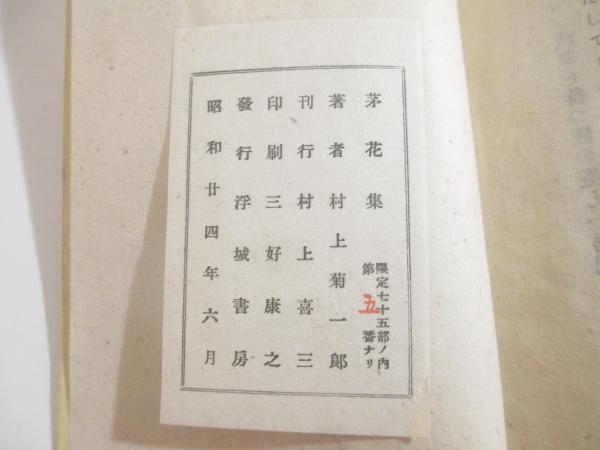 茅花集
限定七十五部ノ內
第五番ナリ
著者村上菊一郞
刊行村上喜三
印刷三好康之
發行浮城書房
昭和廿四年六月